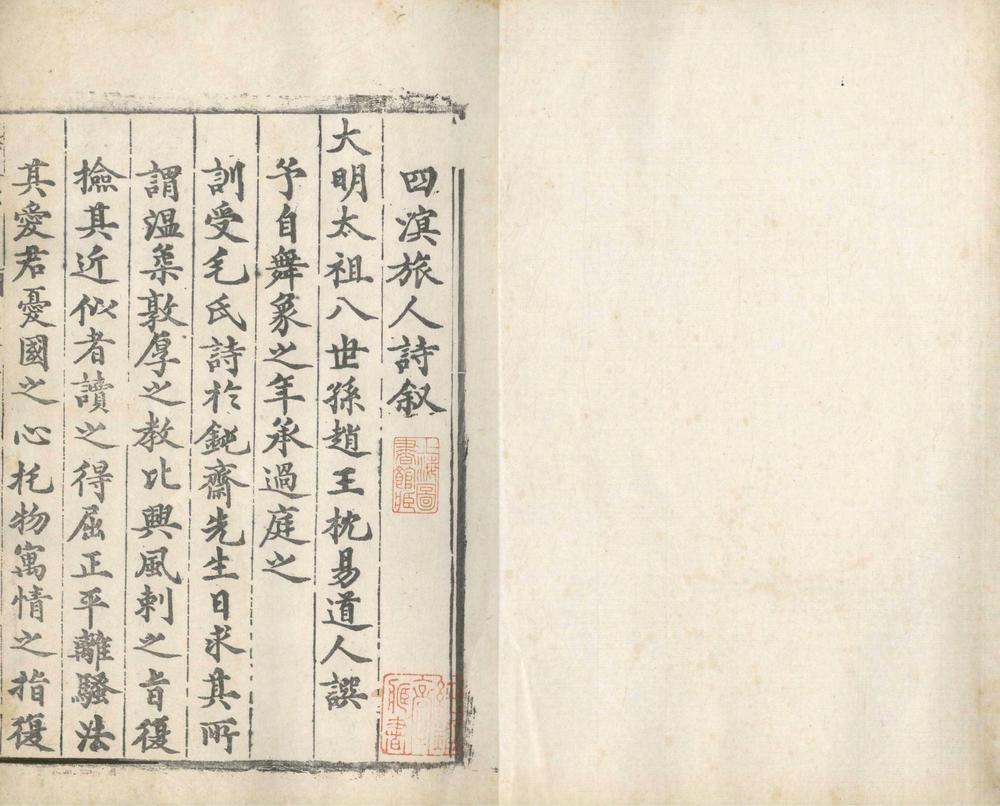 四溟旅人詩叙
大明太祖八世孫趙王枕易道人譔
予自舞象之年承過庭之
訓受毛氏詩於鈍齋先生日求其所
謂溫柔敦厚之教比興風刺之旨復
撿其近似者讀之得屈正平離騷法
其愛君憂國之心托物寓情之指復
上海圖書館藏